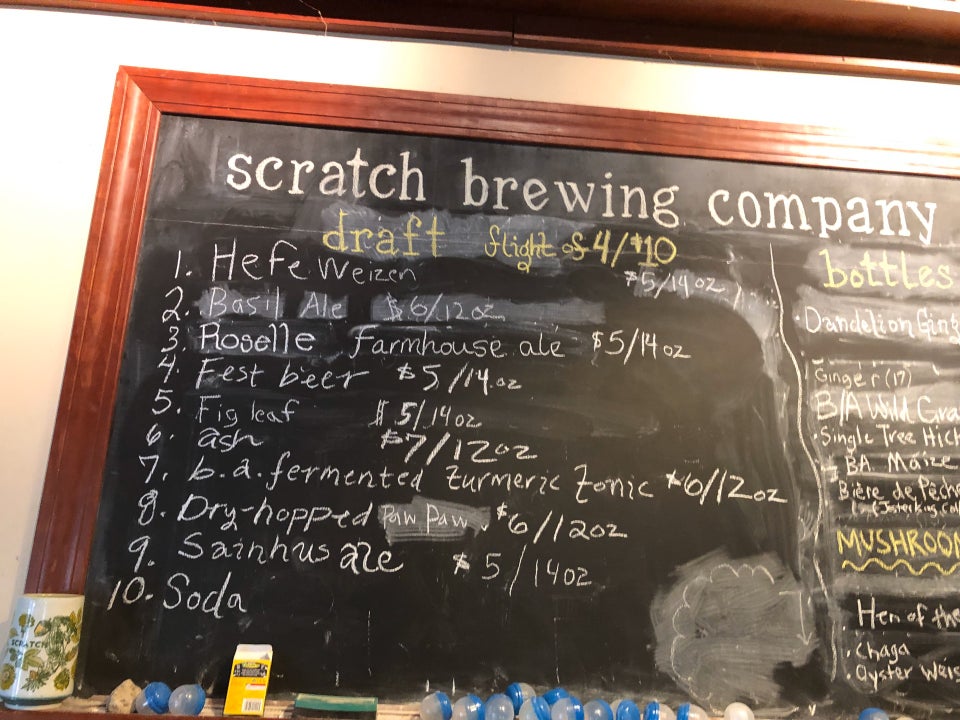 scratch brewing company
draft flight of 4/$10
1. Hefe Weizen $5/14oz
2. Basil Ale $6/12oz
3. Roselle Farmhouse ale $5/14oz
4. Fest beer $5/14.oz
5. Fig leaf $5/14oz
6. ash $7/12oz
7. b.a. fermented turmeric tonic $6/12oz
8. Dry-hopped Paw Paw $6/12oz
9. Sainhus ale $5/14oz
10. Soda
bottles
Dandelion Ging
Ginger (17)
B/A Wild Gra
Single Tree Hick
BA. Maize
Bière de Pêche
MUSHROOM
Hen of the
Chaga
Oyster Weis
SCRATCH